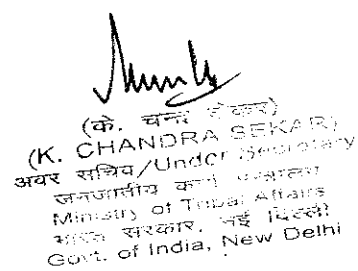 (के. चन्द्र शेकर)
(K. CHANDRA SEKAR)
अवर सचिव/Under Secretary
जनजातीय कार्य मंत्रालय
Ministry of Tribal Affairs
भारत सरकार, नई दिल्ली
Govt. of India, New Delhi